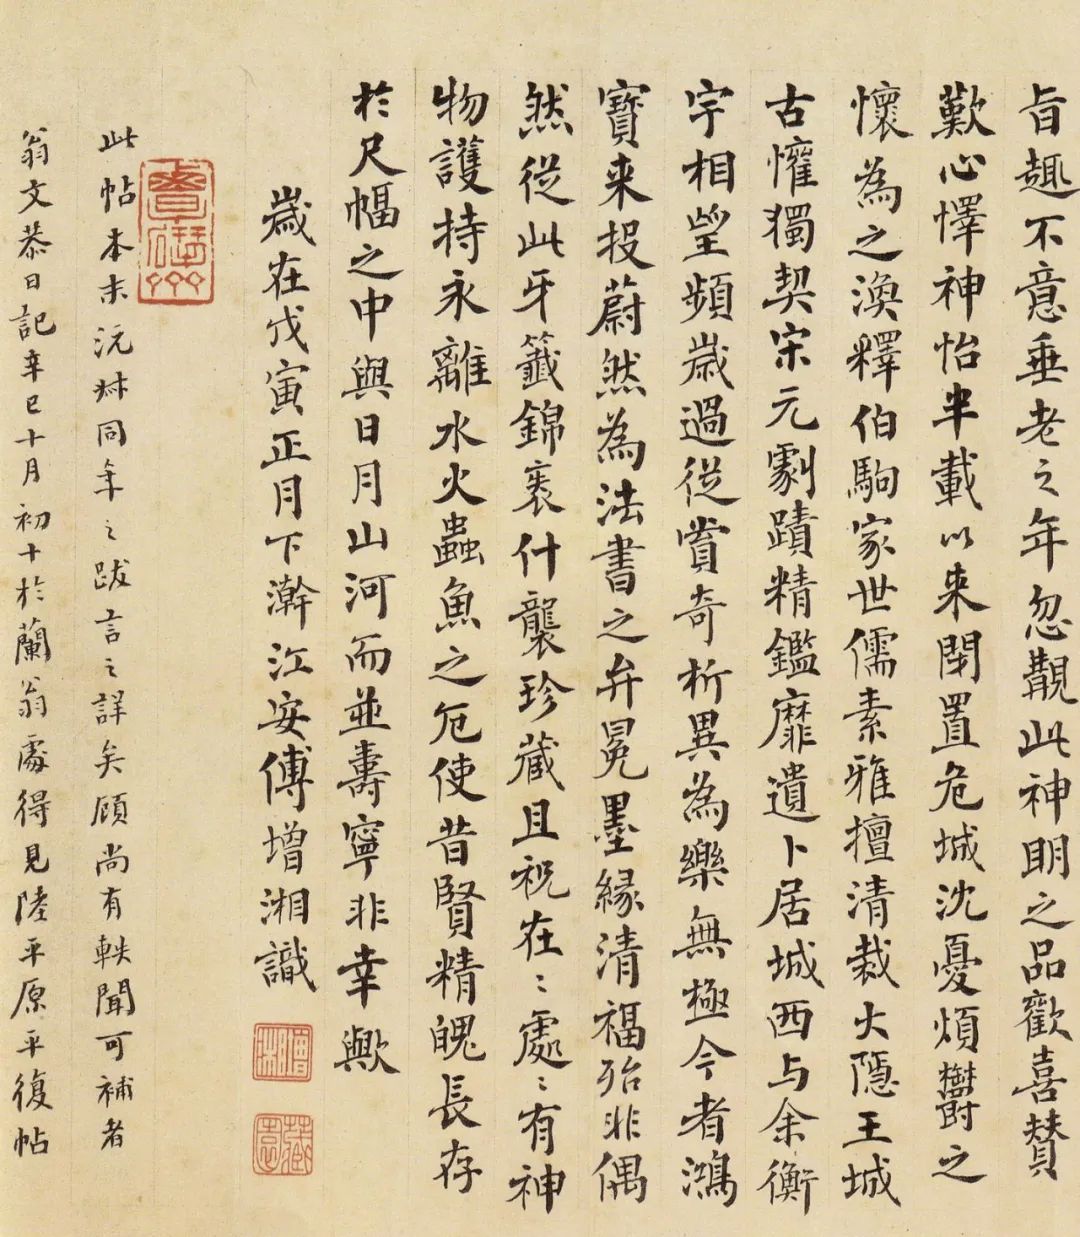 旨趣不意垂老之年忽覩此神明之品歡喜贊
歎心懌神怡半載以来閉置危城沈憂煩欝之
懷為之渙釋伯駒家世儒素雅擅清裁大隱王城
古懽獨契宋元劇蹟精鑑靡遺卜居城西与余衡
宇相望頻歲過從賞奇析異為樂無極今者鴻
寶来投蔚然為法書之弁冕墨緣清福殆非偶
然從此牙籤錦裹什襲珍藏且祝在〻處〻有神
物護持永離水火蟲魚之厄使昔賢精魄長存
於尺幅之中與日月山河而並壽寧非幸歟
歲在戊寅正月下澣江安傅增湘識
此帖本末沅叔同年之跋言之詳矣顧尚有軼聞可補者
翁文恭日記辛巳十月初十於蘭翁處得見陸平原平復帖